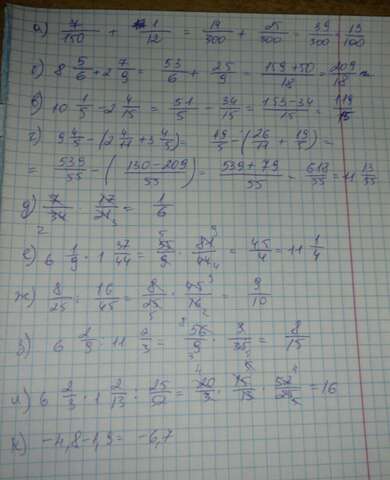 а) 7/150 + 1/12 = 19/300 + 25/300 = 39/300 = 13/100
б) 8 5/6 + 2 7/9 = 53/6 + 25/9 = 159+50/18 = 209/18 =
в) 10 1/5 - 2 4/15 = 51/5 - 34/15 = 153-34/15 = 119/15
г) 9 4/5 - (2 4/11 + 3 4/5) = 49/5 - (26/11 + 19/5) =
= 539/55 - (130-209/55) = 539+79/55 = 618/55 = 11 13/55
д) 7/34 · 17/21 = 1/6
е) 6 1/9 · 1 37/44 = 55/9 · 81/44 = 45/4 = 11 1/4
ж) 8/25 : 16/45 = 8/25 · 45/16 = 9/10
з) 6 2/9 : 11 2/3 = 56/9 · 3/35 = 8/15
и) 6 2/3 · 1 2/13 : 25/52 = 20/3 · 15/13 · 52/25 = 16
к) -4,8-1,9 = -6,7